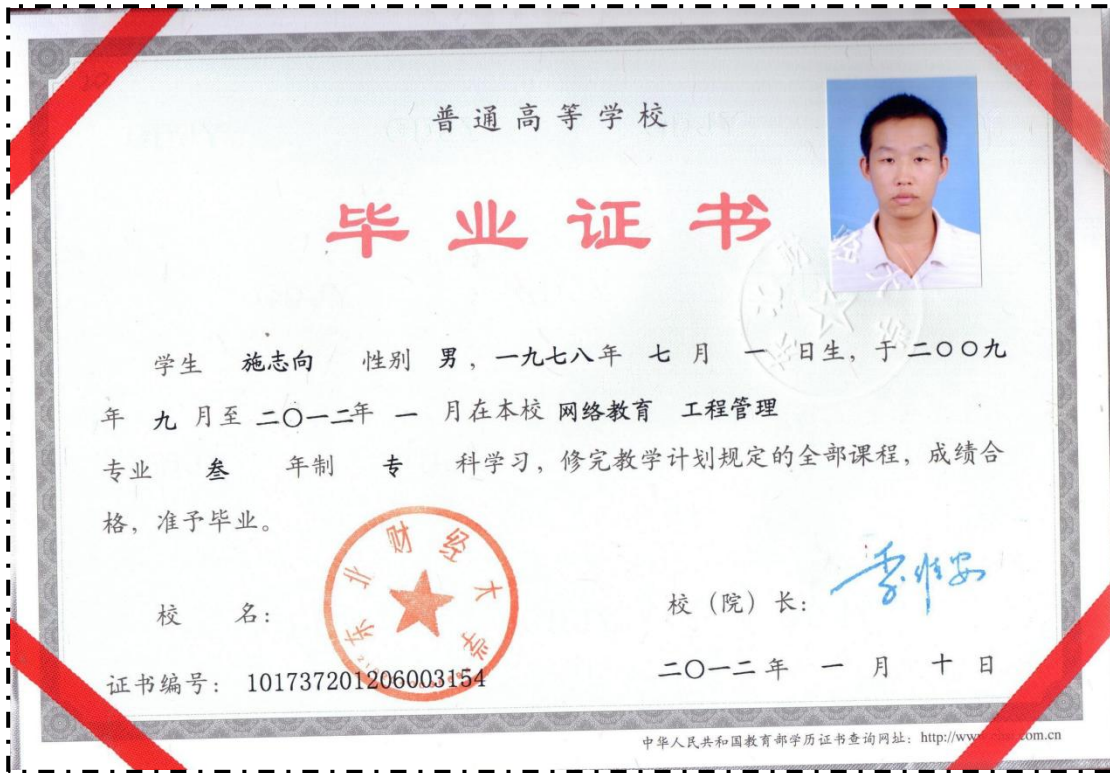 普通高等学校
毕业证书
学生 施志向 性别 男，一九七八年 七 月 一 日生，于二〇〇九
年 九 月至 二〇一二年 一 月在本校 网络教育 工程管理
专业 叁 年制 专 科学习，修完教学计划规定的全部课程，成绩合
格，准予毕业。
东北财经大学
校 名：
校（院）长：
证书编号：101737201206003154
二〇一二年 一 月 十 日
中华人民共和国教育部学历证书查询网址：http://www.com.cn